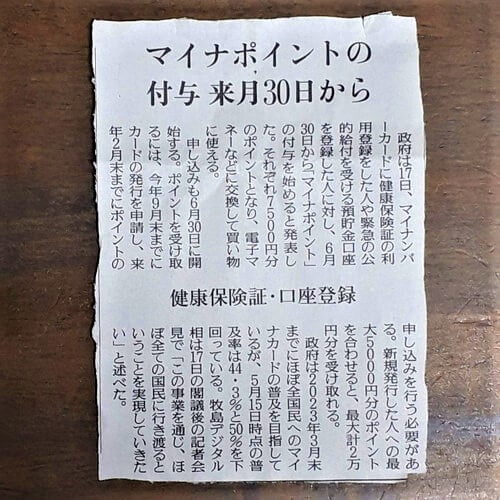 マイナポイントの
付与 来月30日から
政府は17日、マイナンバ
ーカードに健康保険証の利
用登録をした人や緊急の公
的給付を受ける預貯金口座
を登録した人に対し、6月
30日から「マイナポイント」
の付与を始めると発表し
た。それぞれ7500円分
のポイントとなり、電子マ
ネーなどに交換して買い物
に使える。
申し込みも6月30日に開
始する。ポイントを受け取
るには、今年9月末までに
カードの発行を申請し、来
年2月末までにポイントの
健康保険証・口座登録
申し込みを行う必要があ
る。新規発行した人への最
大5000円分のポイント
を合わせると、最大計2万
円分を受け取れる。
政府は2023年3月末
までにほぼ全国民へのマイ
ナカードの普及を目指して
いるが、5月15日時点の普
及率は44・3%と50%を下
回っている。牧島デジタル
相は17日の閣議後の記者会
見で「この事業を通じ、ほ
ぼ全ての国民に行き渡ると
いうことを実現していきた
い」と述べた。